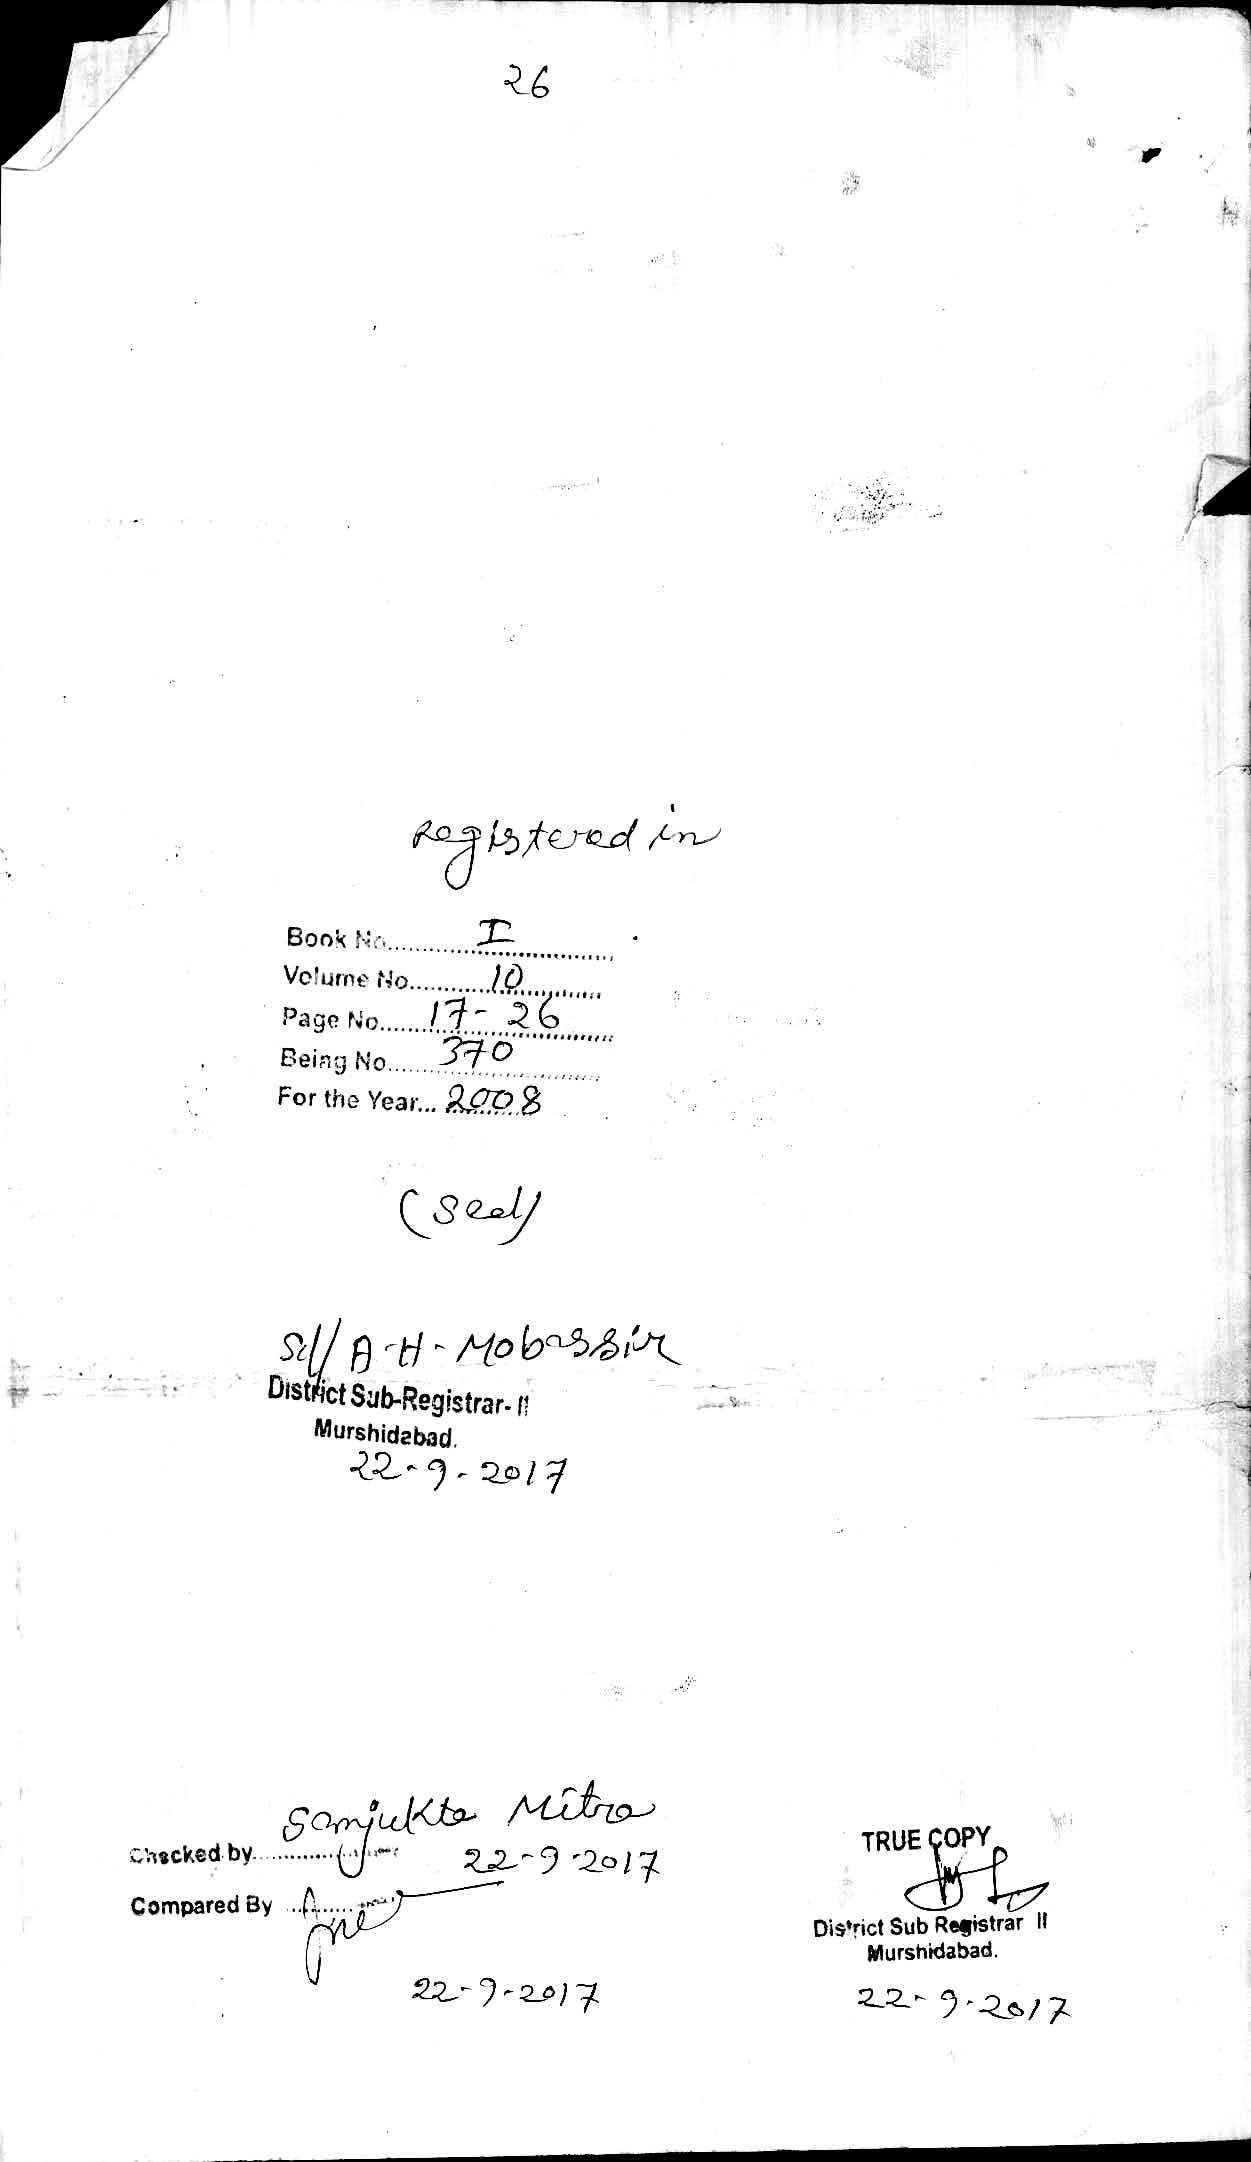 26
Registered in
Book No. I
Volume No. 10
Page No. 17-26
Being No. 370
For the Year... 2008
(Seal)
Sd/ A-H-Mobassir
District Sub-Registrar-II
Murshidabad.
22-9-2017
Sanjukta Mitra
Checked by 22-9-2017
Compared By
22-9-2017
TRUE COPY
District Sub Registrar II
Murshidabad.
22-9-2017